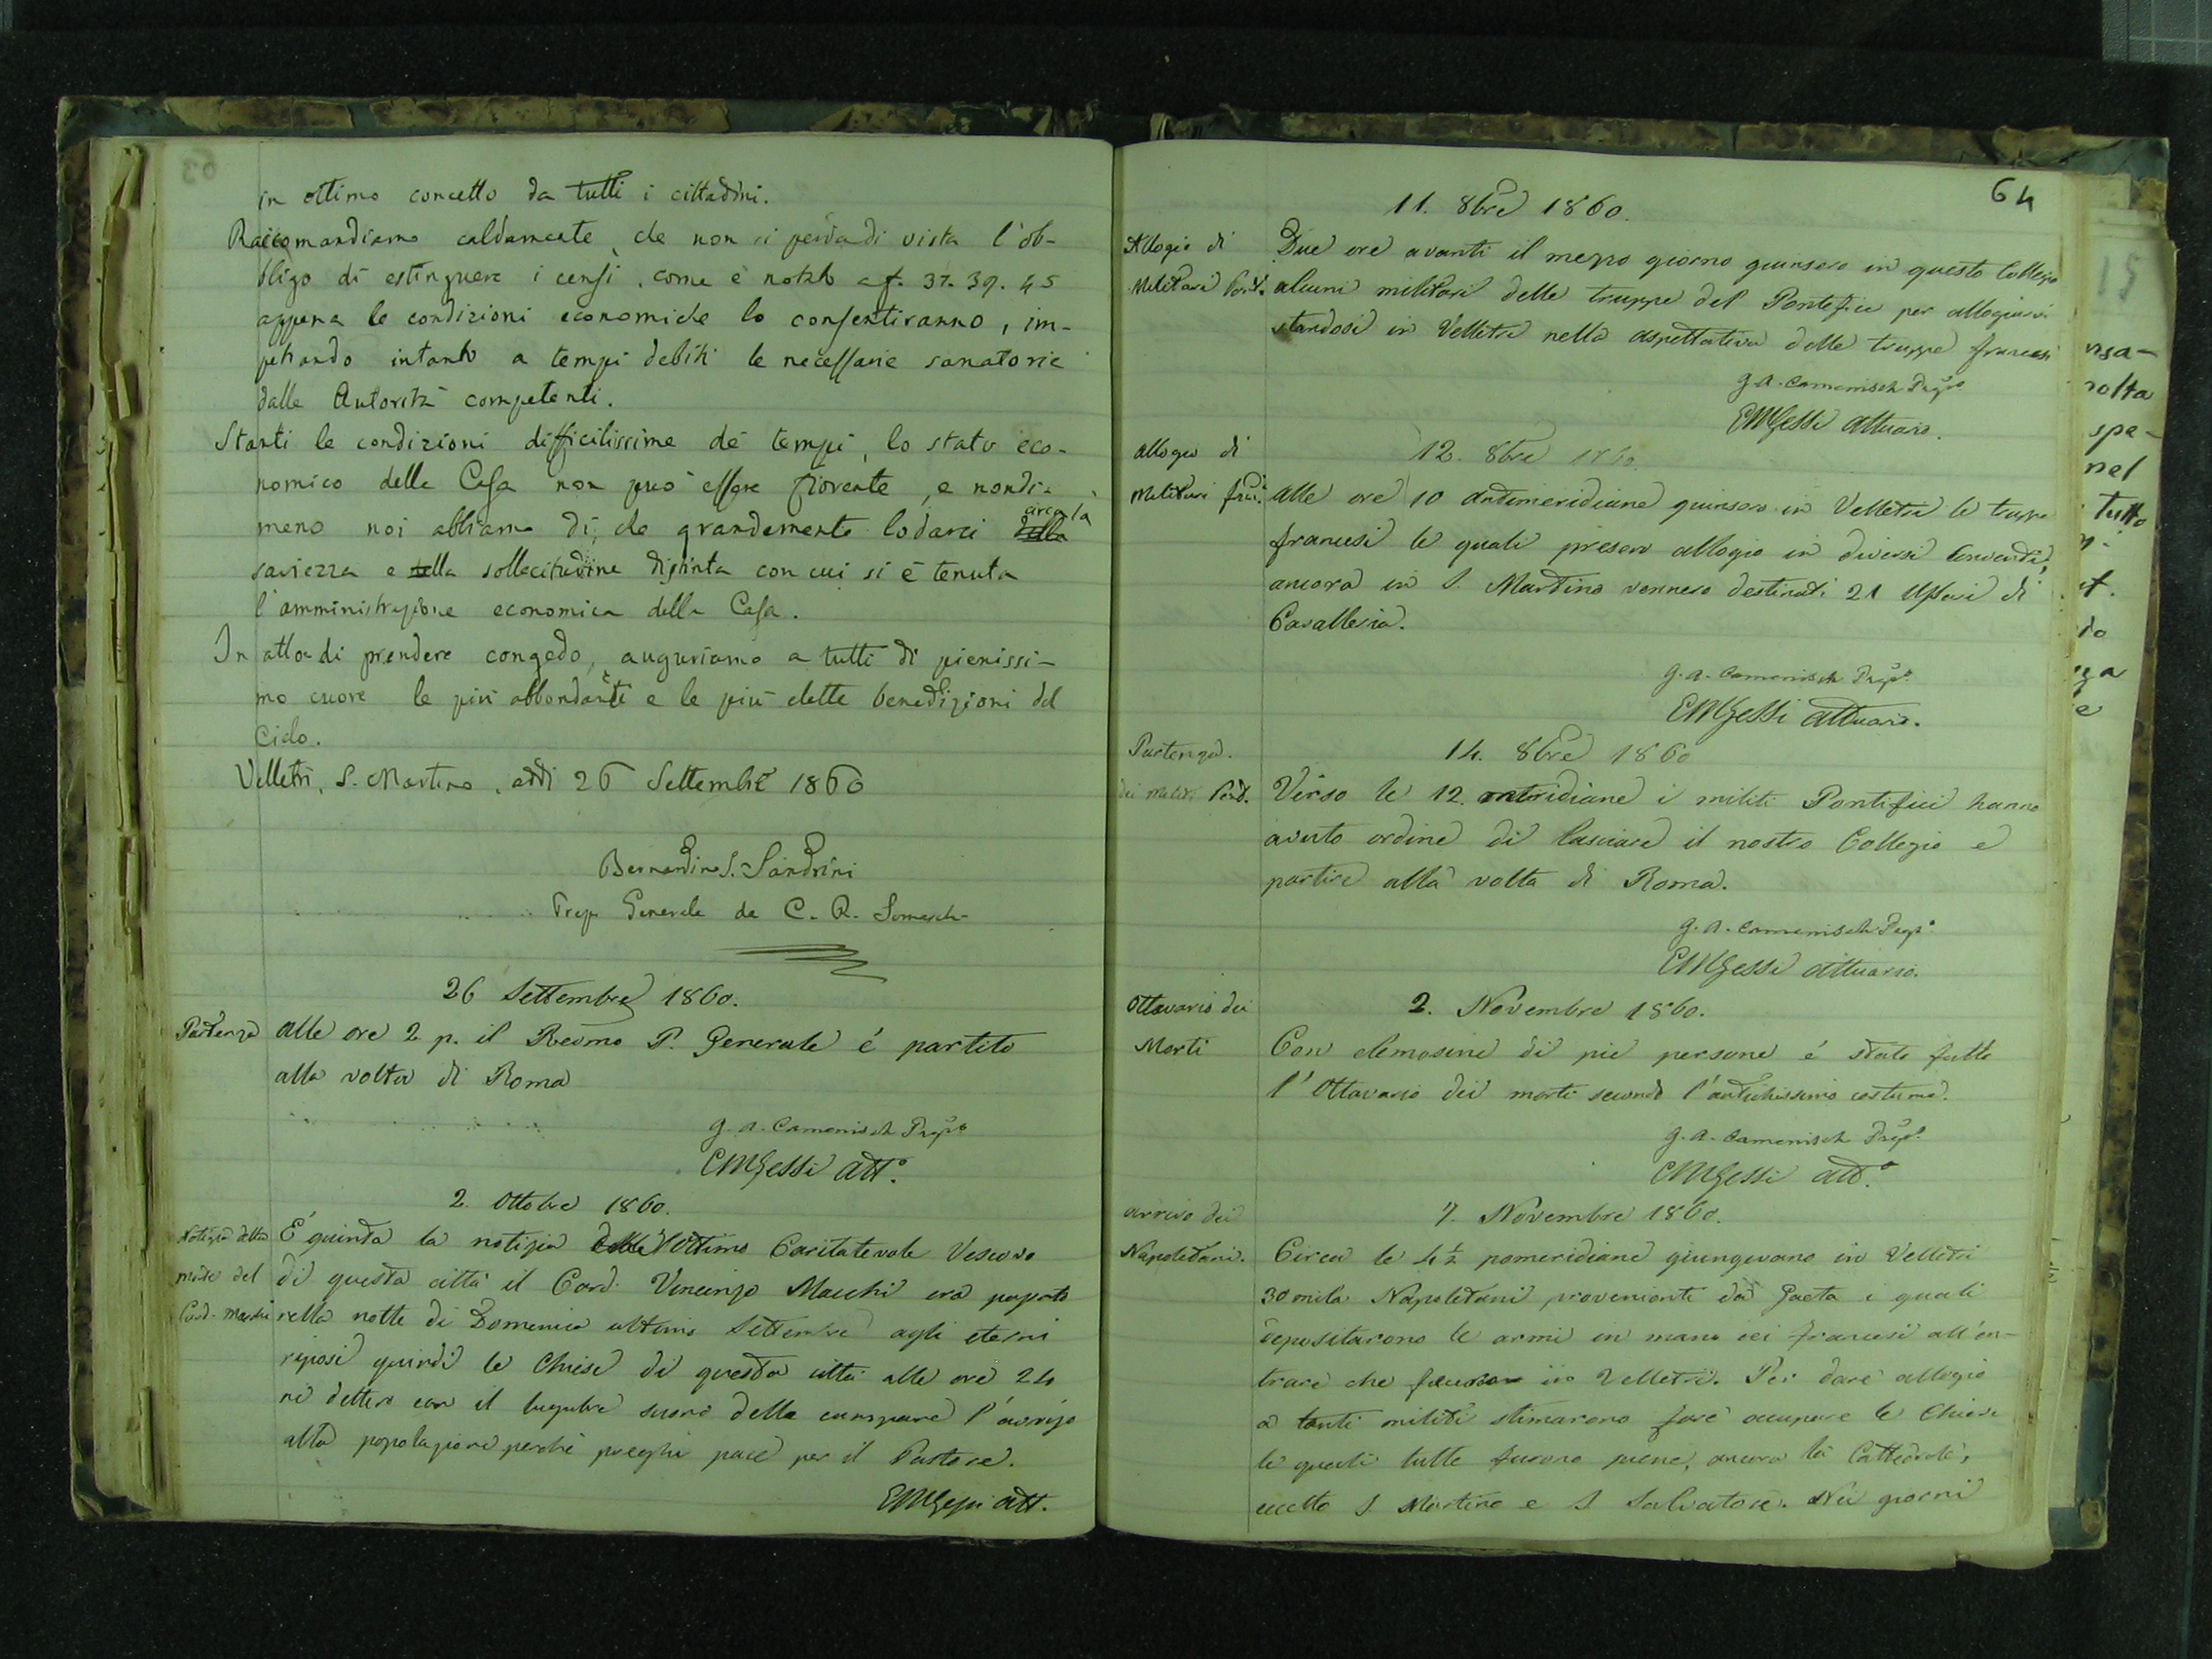 in ottimo concetto da tutti i cittadini.
Raccomandiamo caldamente, che non si perda di vista l'ob-
bligo di estinguere i censi, come è notato a f. 37. 39. 45
appena le condizioni economiche lo consentiranno, im-
petrando intanto a tempi debiti le necessarie sanatorie
dalle Autorità competenti.
Stanti le condizioni difficilissime de' tempi, lo stato eco-
nomico della Casa non può essere fiorente, e nondi-
meno noi abbiamo di che grandemente lodarci della circa la
saviezza e della sollecitudine distinta con cui si è tenuta
l'amministrazione economica della Casa.
In atto di prendere congedo, auguriamo a tutti di pienissi-
mo cuore le più abbondanti e le più elette benedizioni del
Cielo.
Velletri, S. Martino, addì 26 Settembre 1860
Bernardino S. Sandrini
Prep. Generale de C. R. Somaschi
26 Settembre 1860.
Partenza
alle ore 2 p. il Revmo P. Generale é partito
alla volta di Roma
G. A. Camenisch Prepo
EMGessi Att.o
2 Ottobre 1860.
Notizia della morte del Card. Macchi
É giunta la notizia delle l'Ottimo Caritatevole Vescovo
di questa città il Card. Vincenzo Macchi era passato
nella notte di Domenica ultima Settembre agli eterni
riposi quindi le Chiese di questa città alle ore 24
ne dettero con il lugubre suono delle campane l'avviso
alla popolazione perchè preghi pace per il Pastore.
EMGessi att.
64
11. 8bre 1860.
Allogio di Militari Pont.
Due ore avanti il mezzo giorno giunsero in questo Collegio
alcuni militari delle truppe del Pontefice per allogiarvi
standosi in Velletri nella aspettativa delle truppe francesi
G. A. Camenisch Prepo
EMGessi attuario.
12. 8bre 1860.
allogio di Militari frac.
Alle ore 10 antimeridiane giunsero in Velletri le truppe
francesi le quali presero allogio in diversi Conventi,
ancora in S. Martino vennero destinati 21 Uffici di
Cavalleria.
G. A. Camenisch Prepo
EMGessi attuario.
14. 8bre 1860
Partenza dei milit. Pont.
Verso le 12. meridiane i militi Pontifici hanno
avuto ordine di lasciare il nostro Collegio e
partire alla volta di Roma.
G. A. Camenisch Prepo
EMGessi attuario.
2. Novembre 1860.
Ottavario dei Morti
Con elemosine di pie persone é stato fatto
l'Ottavario dei morti secondo l'antichissimo costume.
G. A. Camenisch Prepo
EMGessi att.o
7. Novembre 1860.
arrivo dei Napoletani.
Circa le 4½ pomeridiane giungevano in Velletri
30 mila Napoletani provenienti da Gaeta i quali
depositarono le armi in mano dei francesi all'en-
trare che facevano in Velletri. Per dare allogio
a tanti militi stimarono fare occupare le Chiese
le quali tutte furono piene, ancora la Cattedrale,
eccetto S. Martino e S Salvatore. Nei giorni